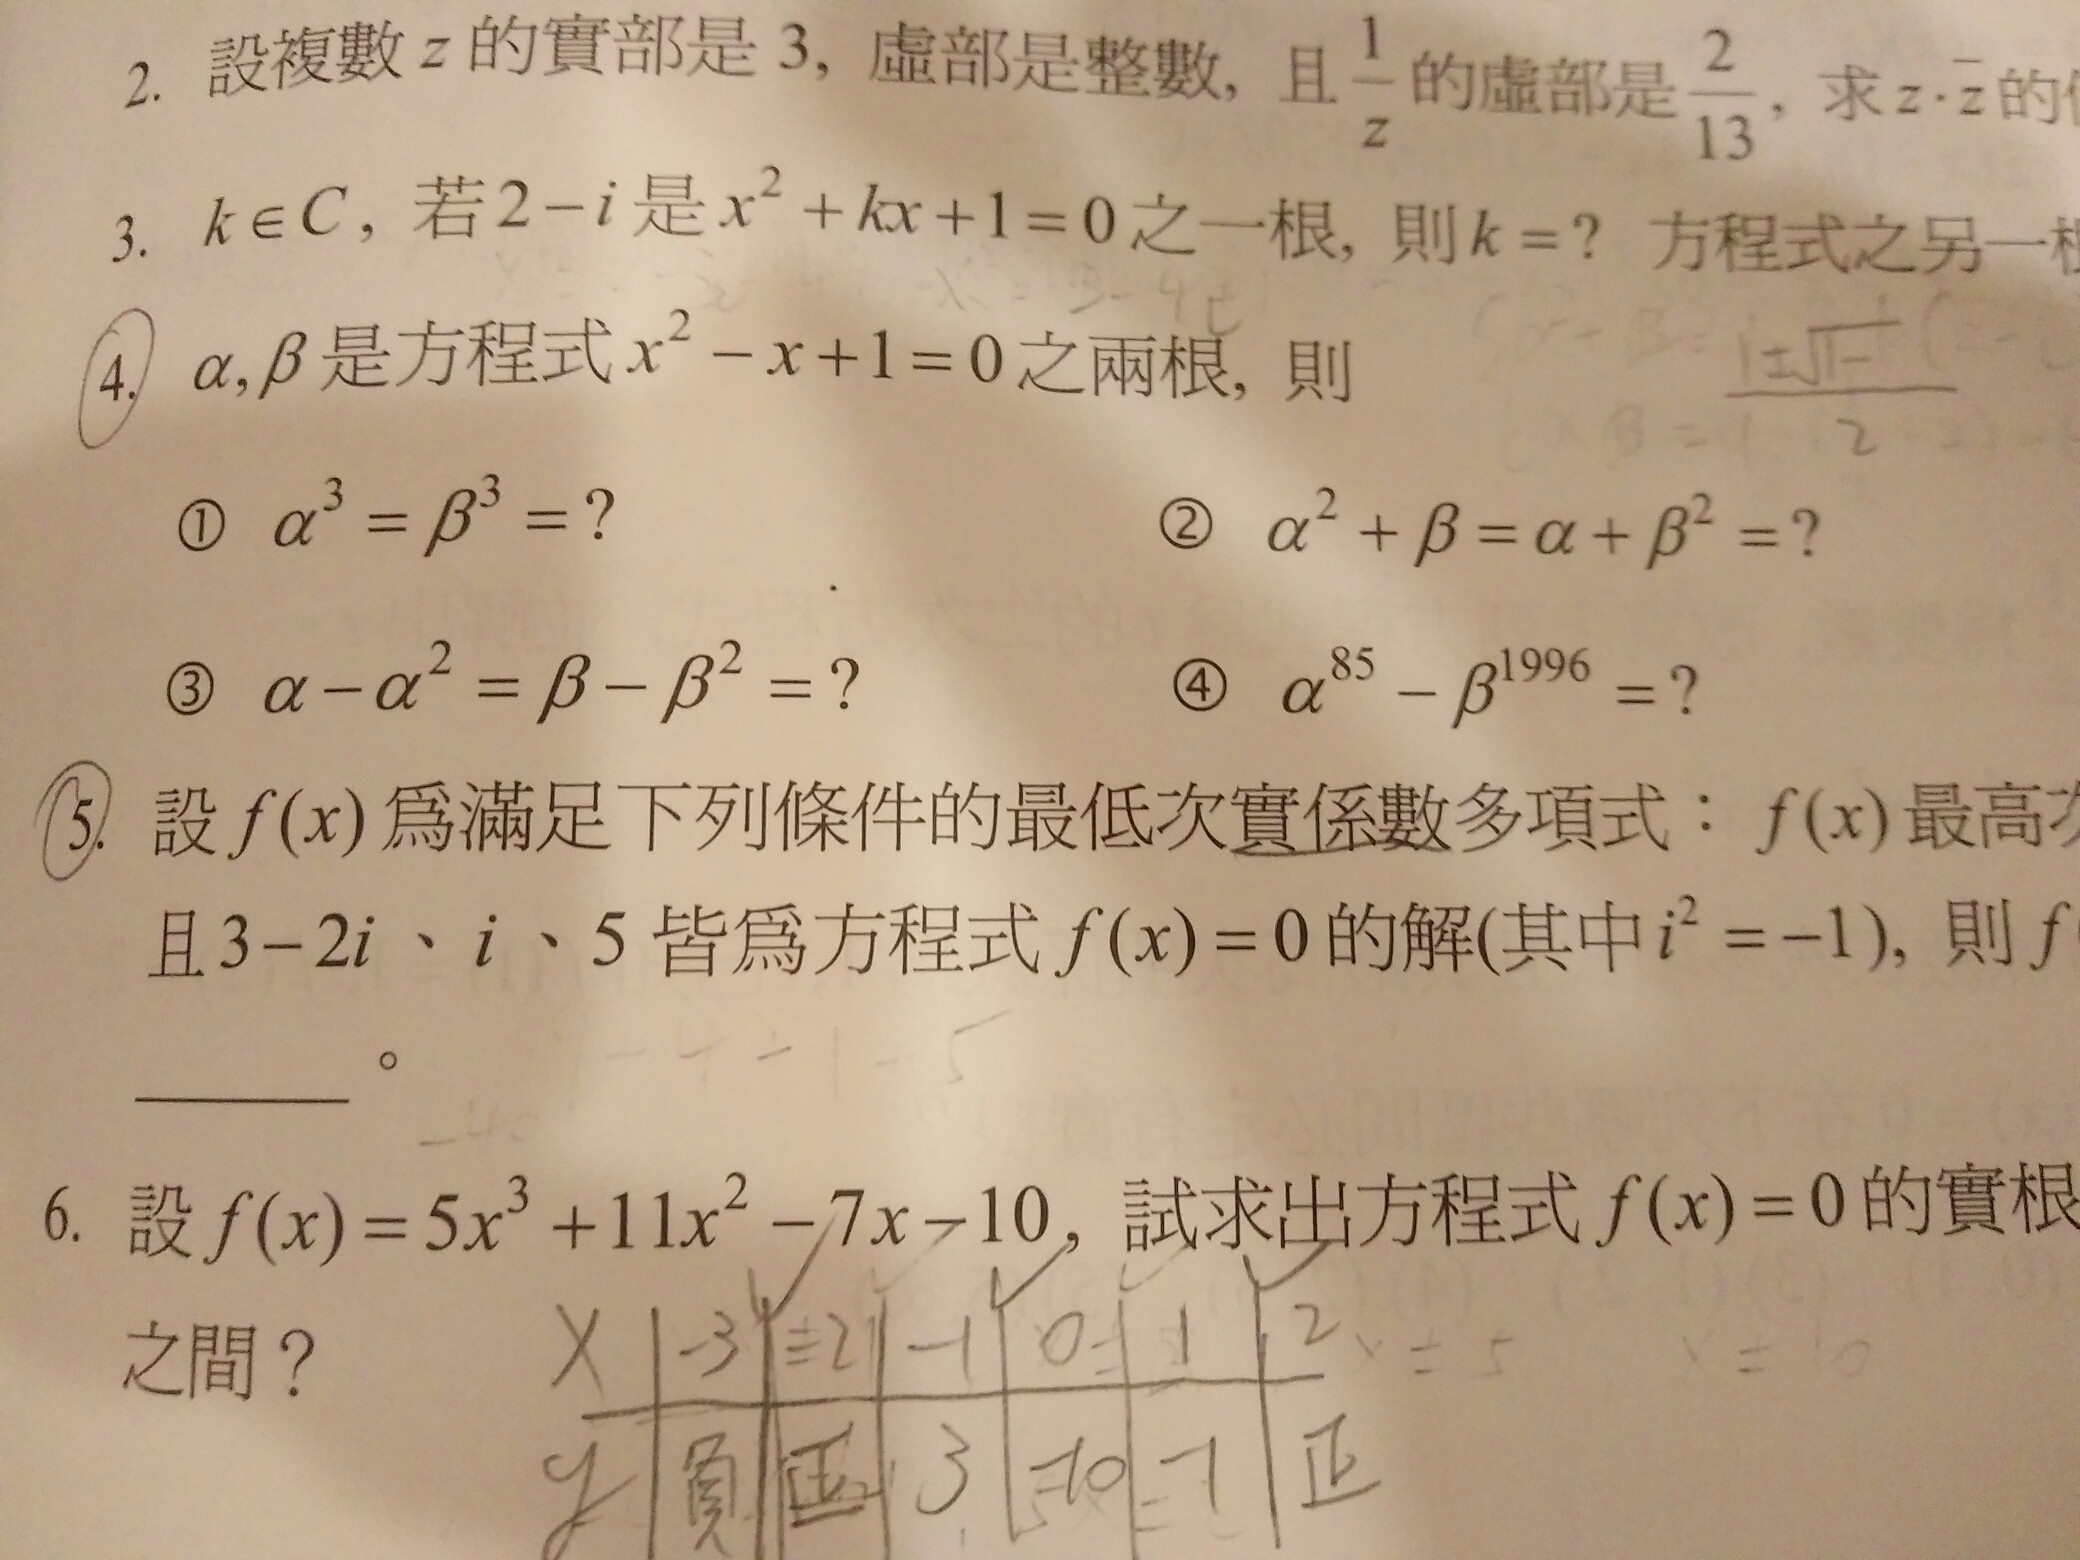 2. 設複數 z 的實部是 3, 虛部是整數, 且 1/z 的虛部是 2/13, 求 z·z̄ 的
3. k∈C, 若 2−i 是 x²+kx+1=0 之一根, 則 k=? 方程式之另一
4. α, β 是方程式 x²−x+1=0 之兩根, 則
① α³=β³=?
② α²+β=α+β²=?
③ α−α²=β−β²=?
④ α⁸⁵−β¹⁹⁹⁶=?
5. 設 f(x) 為滿足下列條件的最低次實係數多項式：f(x) 最高
且 3−2i、i、5 皆為方程式 f(x)=0 的解(其中 i²=−1), 則 f
______。
6. 設 f(x)=5x³+11x²−7x−10, 試求出方程式 f(x)=0 的實根
之間？
X -3 -2 -1 0 1 2
y 負 正 3 -10 -1 正